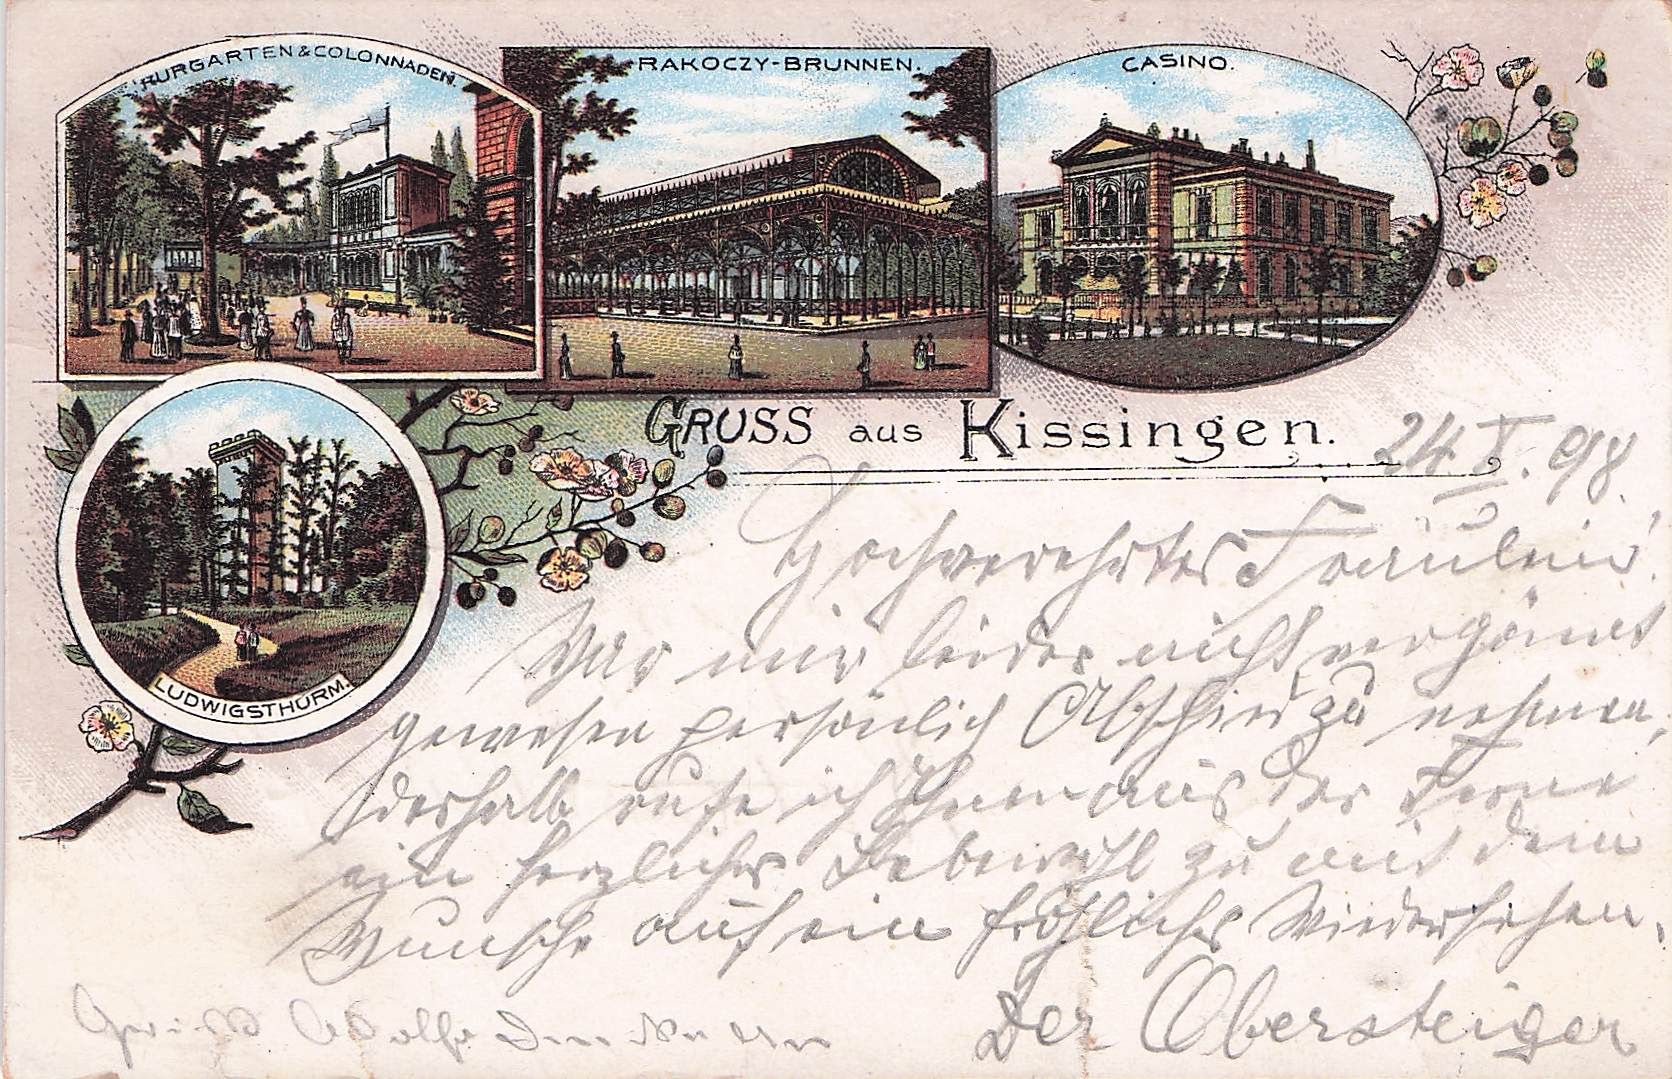 KURGARTEN & COLONNADEN.
RAKOCZY-BRUNNEN.
CASINO.
LUDWIGSTHURM.
GRUSS aus Kissingen.
24. V. 98.
Hochverehrtes Fräulein!
War mir leider nicht vergönnt
gewesen persönlich Abschied zu nehmen,
deshalb rufe ich Ihnen aus der Ferne
ein herzliches Lebewohl zu mit dem
Wunsche auf ein fröhliches Wiedersehen.
Der Obersteiger